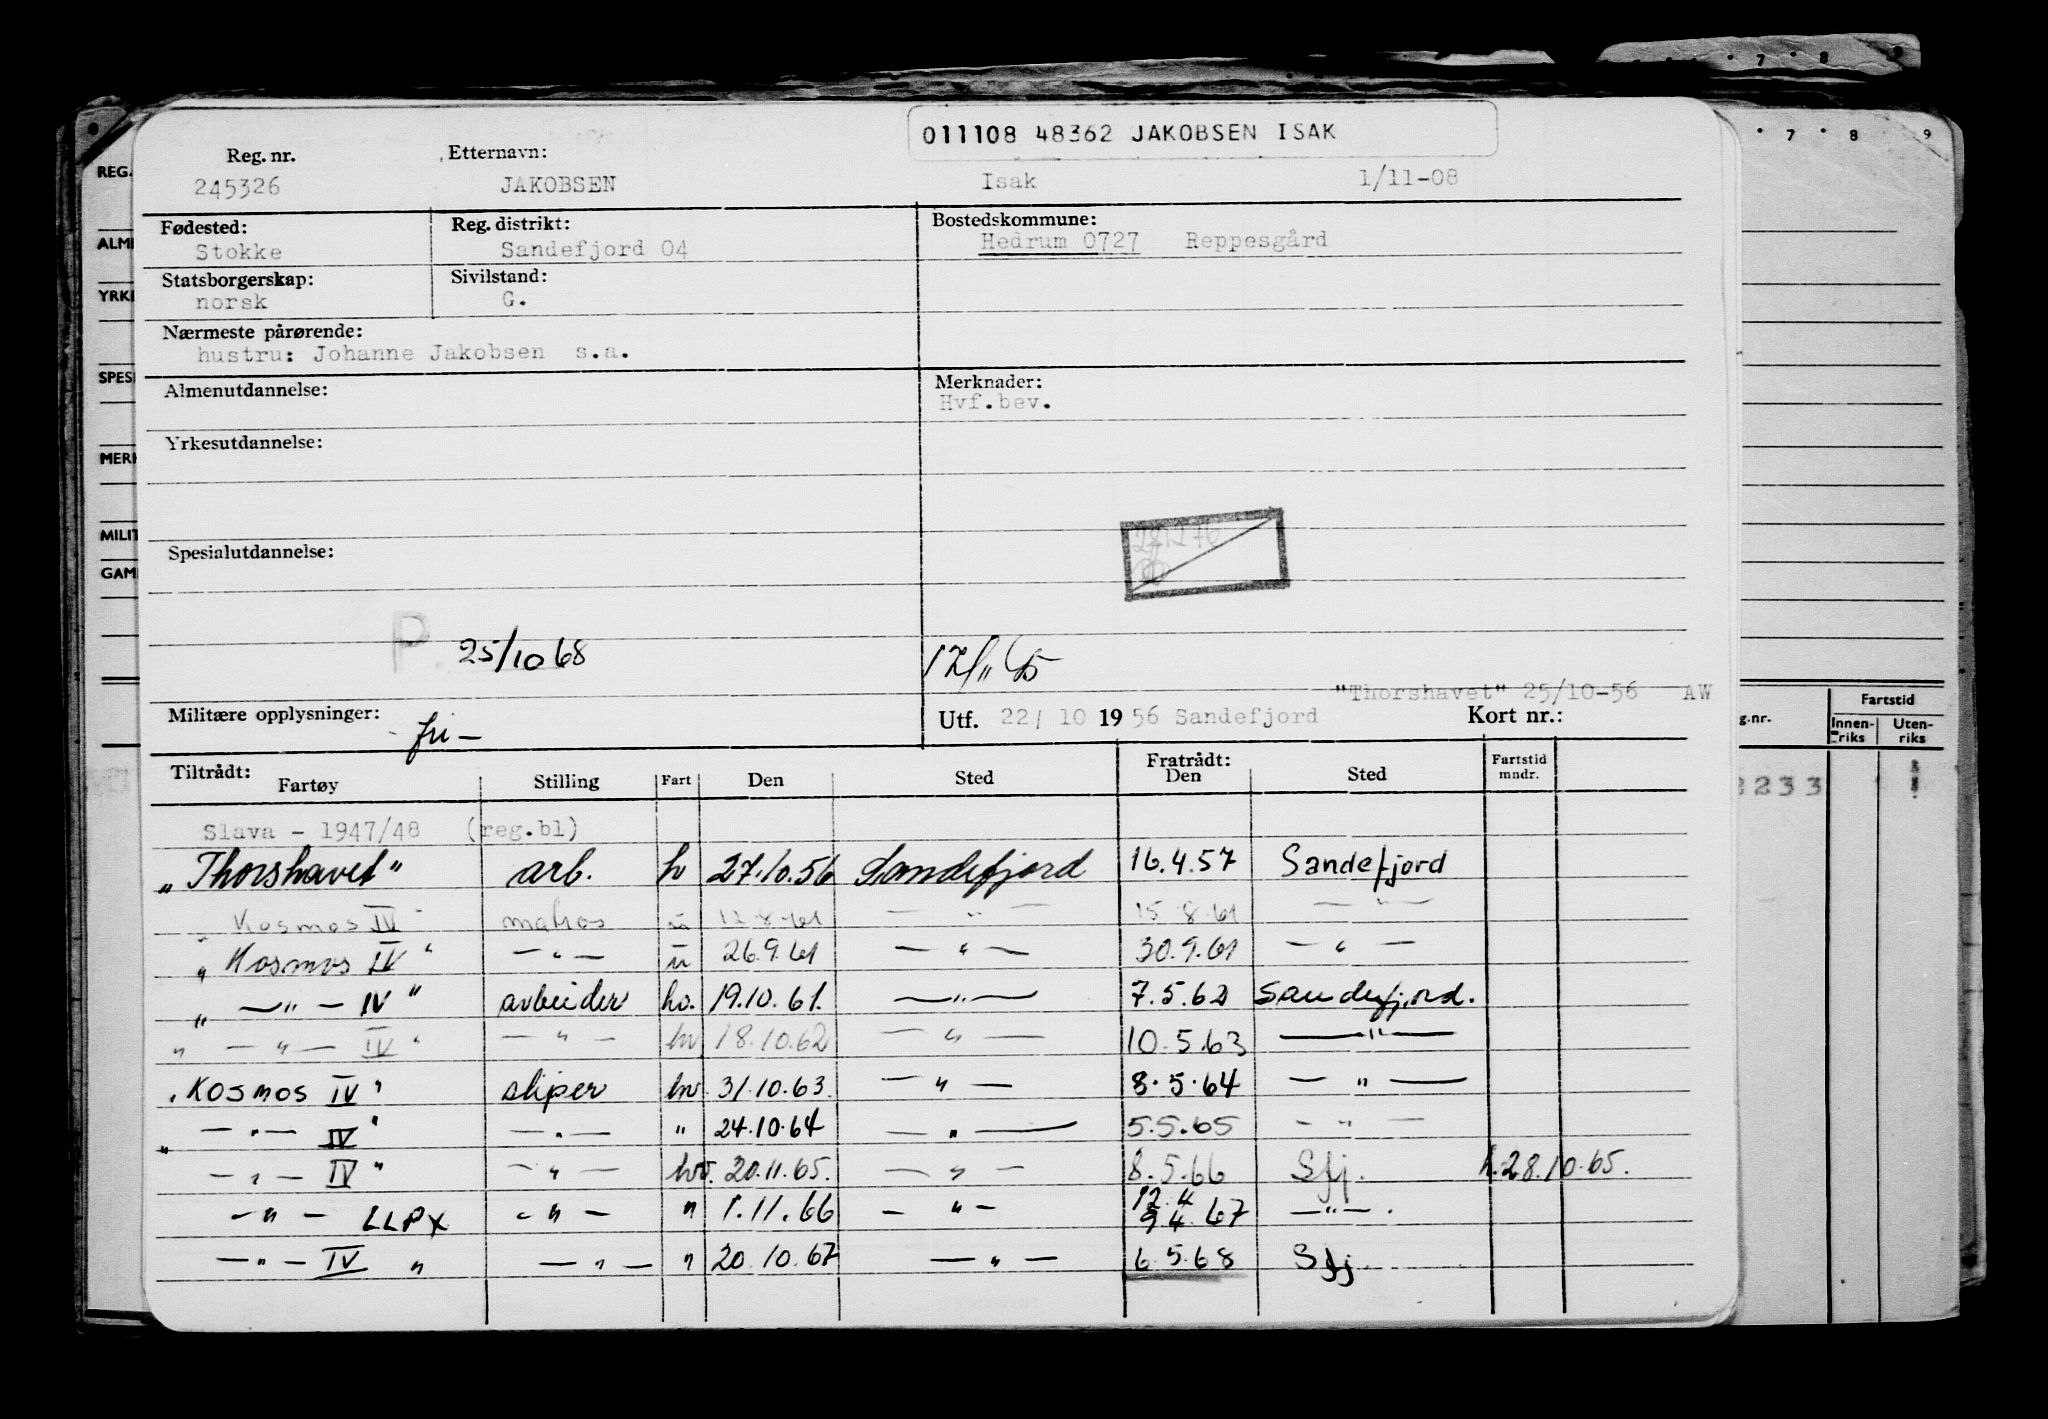 7 8 9
011108 48362 JAKOBSEN ISAK
7 8 9
Reg. nr. Etternavn:
REG.
245326 JAKOBSEN Isak 1/11-08
Fødested: Reg. distrikt: Bostedskommune:
ALM
Stokke Sandefjord 04 Hedrum 0727 Reppesgård
Statsborgerskap: Sivilstand:
YRKE
norsk G.
Nærmeste pårørende:
hustru: Johanne Jakobsen s.a.
SPESI
Almenutdannelse: Merknader:
Hvf.bev.
Yrkesutdannelse:
MERK
MILIT
Spesialutdannelse:
GAM
P. 25/10 68 12/11 65
"Thorshavet" 25/10-56 AW
Militære opplysninger: - fri - Utf. 22/ 10 1956 Sandefjord Kort nr.:
g.nr. Fartstid
Innen-riks Uten-riks
Tiltrådt: Fratrådt: Fartstid
Fartøy Stilling Fart Den Sted Den Sted mndr.
2233
Slava - 1947/48 (reg.bl)
"Thorshavet" arb. hv 27.10.56 Sandefjord 16.4.57 Sandefjord
" Kosmos IV " matros u 12 8 61 — " — 15 8 61 — " —
" Kosmos IV " — " — u 26.9.61 — " — 30.9.61 — " —
" — " — IV " arbeider hv. 19.10.61. — " — 7.5.62 Sandefjord.
" — " — IV " — " — hv 18.10.62 — " — 10.5.63 — " —
" Kosmos IV " sliper hv. 31.10.63. — " — 8.5.64 — " —
" — " — IV " — " — " 24.10.64 — " — 5.5.65 — " —
— " — IV " — " — hv. 20.11.65. — " — 8.5.66 Sfj. h.28.10.65.
— " — LLPX — " — " 1.11.66 — " — 12.4 9 4.67 — " — .
— " — IV " — " — " 20.10.67 — " — 6.5.68 Sfj.